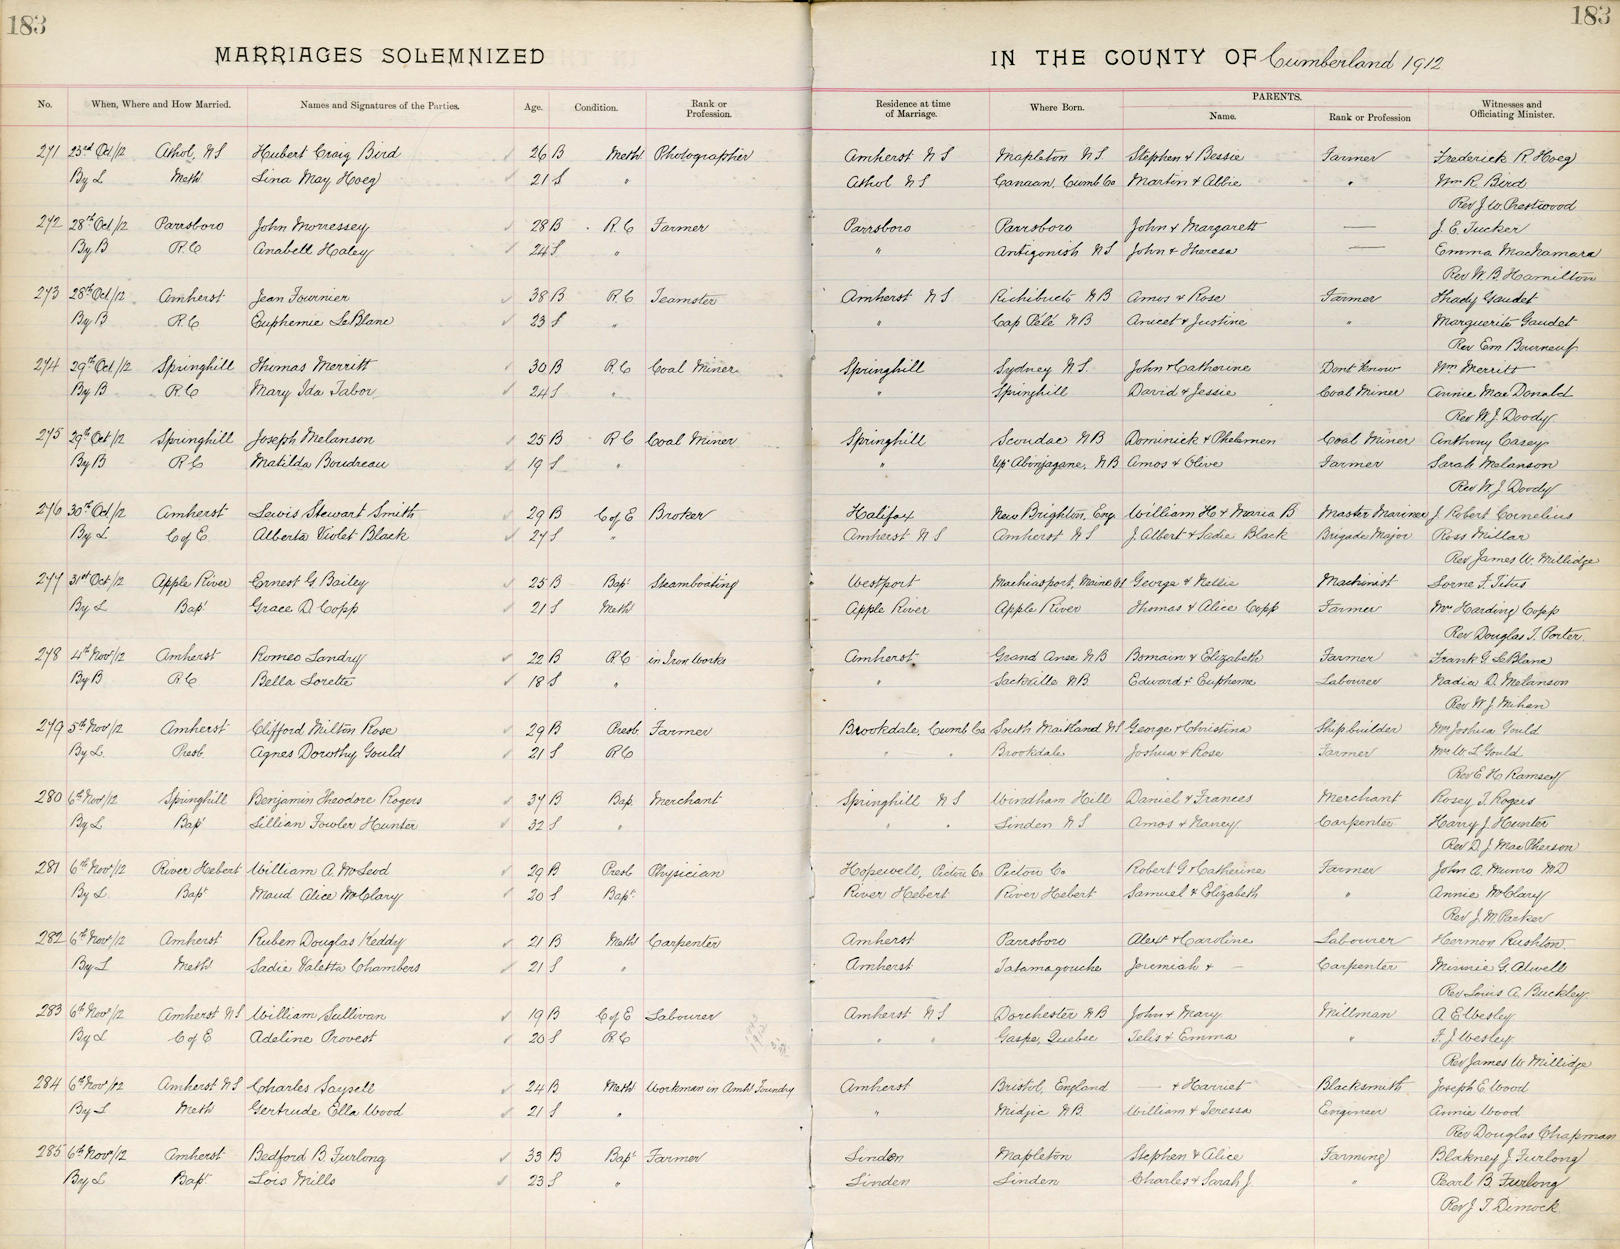 183 183
MARRIAGES SOLEMNIZED IN THE COUNTY OF Cumberland 1912
No. When, Where and How Married. Names and Signatures of the Parties. Age. Condition. Rank or Profession. Residence at time of Marriage. Where Born. PARENTS. Name. Rank or Profession Witnesses and Officiating Minister.
271 23rd Oct/12 Athol, NS Hubert Craig Bird 26 B Meth Photographer Amherst NS Mapleton NS Stephen & Bessie Farmer Frederick R. Hoeg
By L Meth Lina May Hoeg 21 S " Athol NS Canaan, Cumb Co Martin & Abbie " Wm R. Bird
Rev J. W. Prestwood
272 28th Oct/12 Parrsboro John Morressey 28 B R.C Farmer Parrsboro Parrsboro John & Margarett — J. E. Tucker
By B R.C Anabell Haley 24 S " " Antigonish NS John & Theresa — Emma MacNamara
Rev W. B. Hamilton
273 28th Oct/12 Amherst Jean Fournier 38 B R.C Teamster Amherst NS Richibucto NB Amos & Rose Farmer Thady Gaudet
By B R.C Euphemie LeBlanc 23 S " " Cap Pélé NB Anicet & Justine " Marguerite Gaudet
Rev Em Bourneuf
274 29th Oct/12 Springhill Thomas Merritt 30 B R.C Coal Miner Springhill Sydney NS John & Catherine Dont Know Wm Merritt
By B R.C Mary Ida Tabor 24 S " " Springhill David & Jessie Coal Miner Annie MacDonald
Rev W. J. Doody
275 29th Oct/12 Springhill Joseph Melanson 25 B R.C Coal Miner Springhill Scoudac NB Dominick & Phelamen Coal Miner Anthony Casey
By B R.C Matilda Boudreau 19 S " " Up. Aboujagane, NB Amos & Olive Farmer Sarah Melanson
Rev W. J. Doody
276 30th Oct/12 Amherst Lewis Stewart Smith 29 B C of E Broker Halifax New Brighton, Eng William H & Maria B Master Mariner J Robert Cornelius
By L C of E Alberta Violet Black 27 S " Amherst NS Amherst NS J. Albert & Sadie Black Brigade Major Ross Millar
Rev James W. Millidge
277 31st Oct/12 Apple River Ernest G Bailey 25 B Bapt Steamboating Westport Machiasport, Maine US George & Nellie Machinist Lorne F. Titus
By L Bapt Grace D. Copp 21 S Meth Apple River Apple River Thomas & Alice Copp Farmer Mrs Harding Copp
Rev Douglas T. Porter
278 4th Nov/12 Amherst Romeo Landry 22 B R.C in Iron Works Amherst Grand Anse NB Bomain & Elizabeth Farmer Frank G LeBlanc
By B R.C Bella Lorette 18 S " " Sackville NB Edward & Eupheme Labourer Nadia D. Melanson
Rev W J Mihan
279 5th Nov/12 Amherst Clifford Milton Rose 29 B Presb Farmer Brookdale, Cumb Co South Maitland NS George & Christina Shipbuilder Mrs Joshua Gould
By L Presb Agnes Dorothy Gould 21 S R.C " " Brookdale Joshua & Rose Farmer Mrs W. L Gould
Rev E. H. Ramsey
280 6th Nov/12 Springhill Benjamin Theodore Rogers 37 B Bap Merchant Springhill NS Windham Hill Daniel & Frances Merchant Rosey T. Rogers
By L Bapt Lillian Fowler Hunter 32 S " " " Linden NS Amos & Nancy Carpenter Harry J. Hunter
Rev D. J. MacPherson
281 6th Nov/12 River Hebert William A. McLeod 29 B Presb Physician Hopewell, Pictou Co Pictou Co Robert G & Catherine Farmer John A. Munro MD
By L Bapt Maud Alice McClary 20 S Bapt River Hebert River Hebert Samuel & Elizabeth " Annie McClary
Rev J. M. Parker
282 6th Nov/12 Amherst Ruben Douglas Keddy 21 B Meth Carpenter Amherst Parrsboro Alext & Caroline Labourer Hermon Rushton
By L Meth Sadie Valetta Chambers 21 S " Amherst Tatamagouche Jeremiah & — Carpenter Minnie G. Atwell
Rev Louis A. Buckley
283 6th Nov/12 Amherst NS William Sullivan 19 B C of E Labourer Amherst NS Dorchester NB John & Mary Millman A. E Wesley
By L C of E Adeline Provest 20 S R.C " " Gaspe, Quebec Telis & Emma " F. J Wesley
Rev James W Millidge
284 6th Nov/12 Amherst NS Charles Saysell 24 B Meth Workman in Amht Foundry Amherst Bristol, England — & Harriet Blacksmith Joseph E. Wood
By L Meth Gertrude Ella Wood 21 S " " Midgic NB William & Teressa Engineer Annie Wood
Rev Douglas Chapman
285 6th Nov/12 Amherst Bedford B. Furlong 33 B Bapt Farmer Linden Mapleton Stephen & Alice Farming Blakney J. Furlong
By L Bapt Lois Mills 23 S " Linden Linden Charles & Sarah J. " Pearl B. Furlong
Rev J. T. Dimock